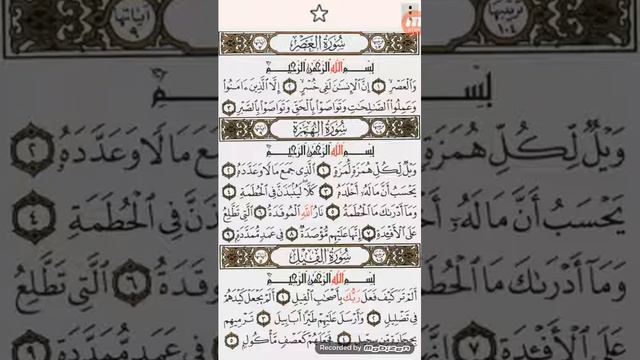 سُورَةُ العَصْرِ
بِسْمِ اللَّهِ الرَّحْمَٰنِ الرَّحِيمِ
وَالْعَصْرِ ١ إِنَّ الْإِنسَانَ لَفِي خُسْرٍ ٢ إِلَّا الَّذِينَ ءَامَنُوا
وَعَمِلُوا الصَّالِحَاتِ وَتَوَاصَوْا بِالْحَقِّ وَتَوَاصَوْا بِالصَّبْرِ ٣
سُورَةُ الهُمَزَةِ
بِسْمِ اللَّهِ الرَّحْمَٰنِ الرَّحِيمِ
وَيْلٌ لِّكُلِّ هُمَزَةٍ لُّمَزَةٍ ١ الَّذِي جَمَعَ مَالًا وَعَدَّدَهُ ٢
يَحْسَبُ أَنَّ مَالَهُ أَخْلَدَهُ ٣ كَلَّا لَيُنبَذَنَّ فِي الْحُطَمَةِ ٤
وَمَا أَدْرَاكَ مَا الْحُطَمَةُ ٥ نَارُ اللَّهِ الْمُوقَدَةُ ٦ الَّتِي تَطَّلِعُ
عَلَى الْأَفْئِدَةِ ٧ إِنَّهَا عَلَيْهِم مُّؤْصَدَةٌ ٨ فِي عَمَدٍ مُّمَدَّدَةٍ ٩
سُورَةُ الفِيلِ
بِسْمِ اللَّهِ الرَّحْمَٰنِ الرَّحِيمِ
أَلَمْ تَرَ كَيْفَ فَعَلَ رَبُّكَ بِأَصْحَابِ الْفِيلِ ١ أَلَمْ يَجْعَلْ كَيْدَهُمْ
فِي تَضْلِيلٍ ٢ وَأَرْسَلَ عَلَيْهِمْ طَيْرًا أَبَابِيلَ ٣ تَرْمِيهِم
بِحِجَارَةٍ مِّن سِجِّيلٍ ٤ فَجَعَلَهُمْ كَعَصْفٍ مَّأْكُولٍ ٥
Recorded by Mobizen